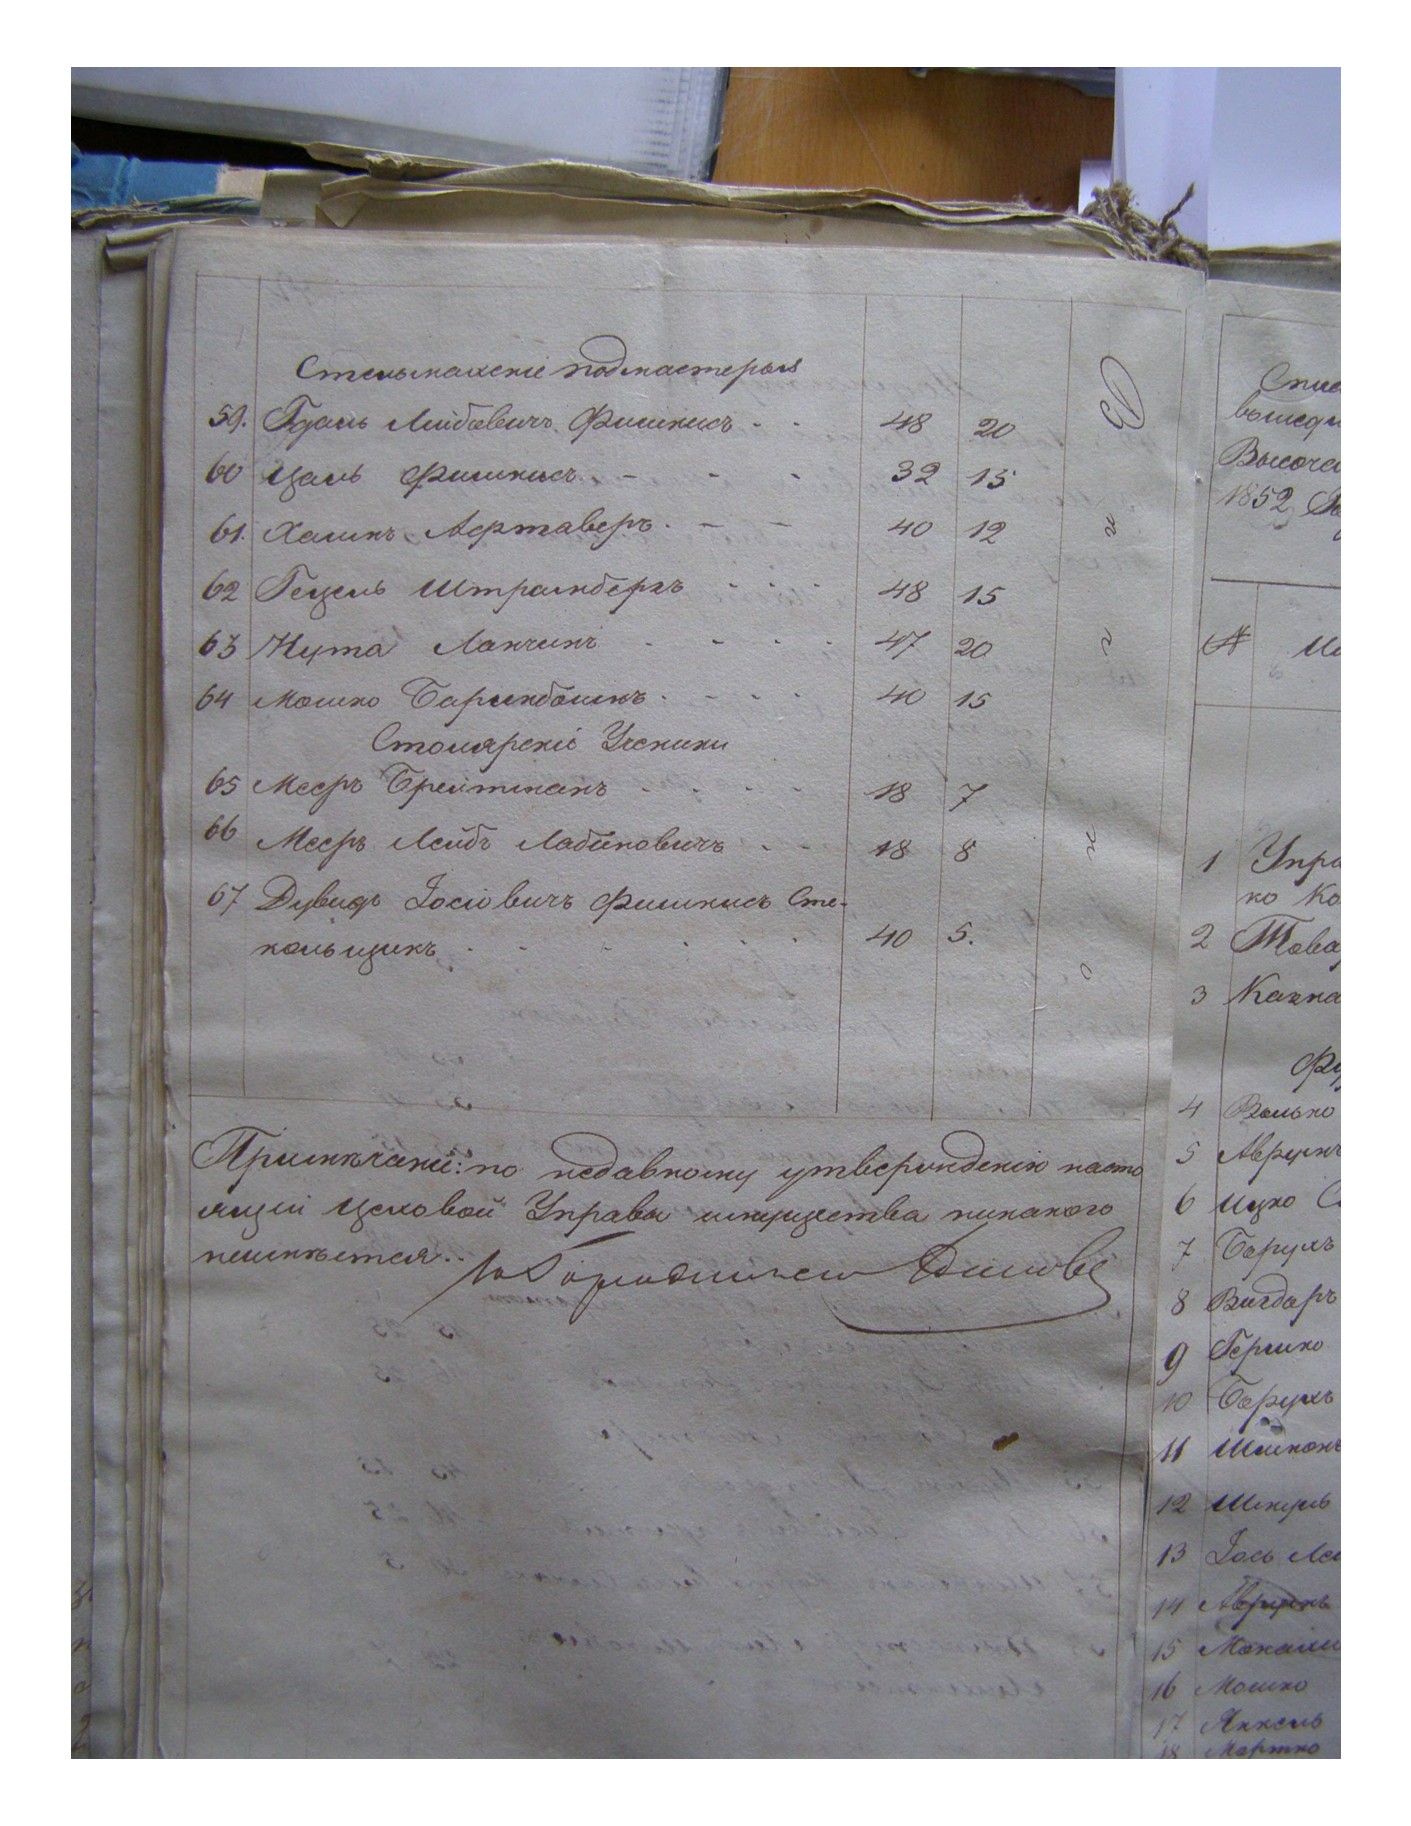 Стельмашскіе подмастерья
59. Гдаль Лейбовичъ Фишкисъ 48 20
60 Цаль Фишкисъ 32 15
61. Хаимъ Аертаверъ 40 12
62 Гецель Штрамбергъ 48 15
63 Нута Лакчинъ 47 20
64 Мошко Баренбоимъ 40 15
Столярскіе Ученики
65 Мееръ Бреитманъ 18 7
66 Мееръ Лейбъ Лабиновичъ 18 8
67 Дувидъ Іосіовичъ Фишкисъ Сте-
кольщикъ 40 5.
Примѣчаніе: по недавному утвержденію насто
ящей Цеховой Управы имущества никакого
неимѣется.
Городничего
Спис
вышедш
Высоча
1852
№ И
1 Упра
ко Ко
2 Това
3 Казна
4 Волько
5 Аврумъ
6 Ицко С
7 Барухъ
8 Вигдоръ
9 Гершко
10 Борухъ
11 Шимонъ
12 Шмуль
13 Іось Ле
14 Аврумъ
15 Монаши
16 Мошко
17 Янкель
18 Мортко